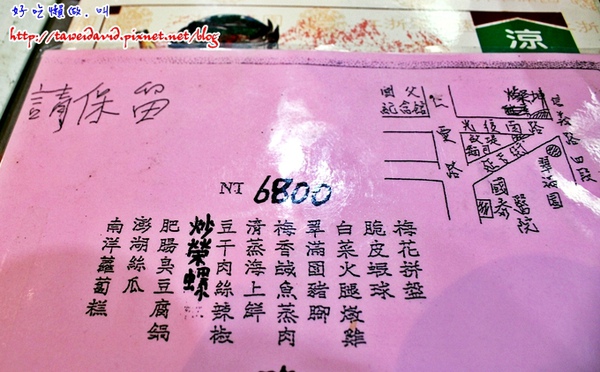 好吃懶做.叫
http://taweidavid.pixnet.net/blog
涼
請保留
國父
紀念館
仁
愛
路
光復南路
延吉街
國泰
醫院
翠滿園
四段
NT 6800
梅花拼盤
脆皮蝦球
白菜火腿燉雞
翠滿園豬腳
梅香鹹魚蒸肉
清蒸海上鮮
豆干肉絲辣椒
炒榮螺
肥腸臭豆腐鍋
澎湖絲瓜
南洋蘿蔔糕